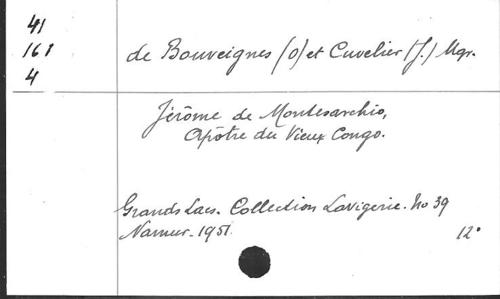 41
161
4
de Bouveignes (O) et Cuvelier (J.) Mgr.
Jérôme de Montesarchio,
Apôtre du Vieux Congo.
Grands Lacs. Collection Lavigerie. No 39
Namur. 1951.
12°